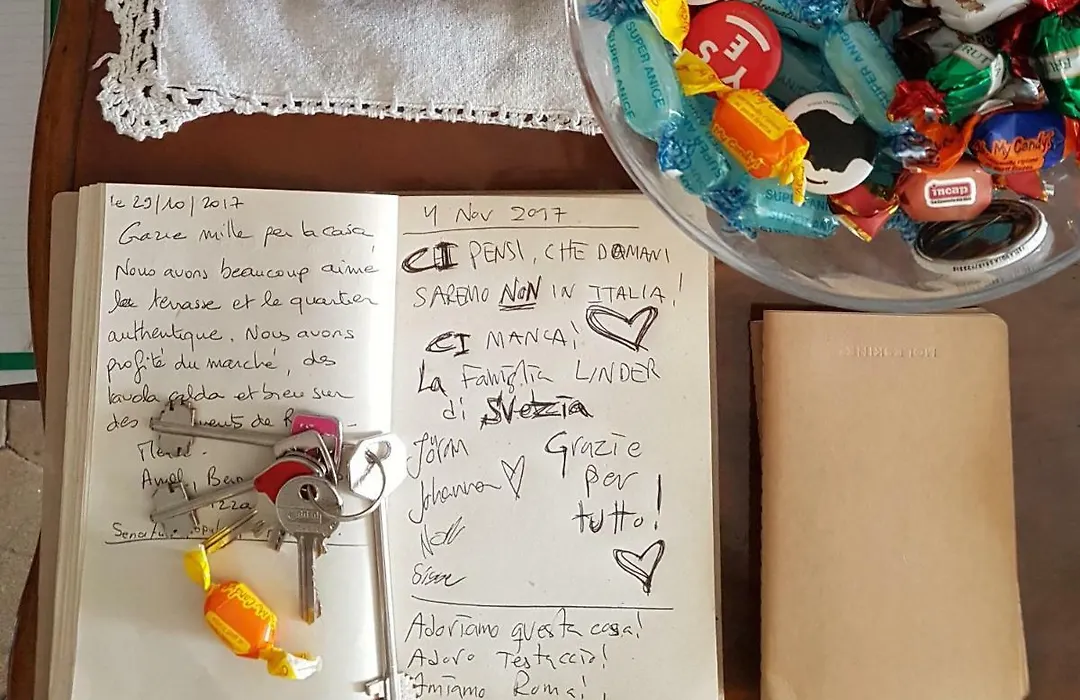 le 29/10/2017
Gazie mille per la casa
Nous avons beaucoup aimé
la terrasse et le quartier
authentique. Nous avons
profité du marché, des
tavola calda et bien sur
des
4 Nov 2017
CI PENSI, CHE DOMANI
SAREMO NON IN ITALIA!
CI MANCA!
La Famiglia LINDER
di SVEZIA
Jöran
Johanna
Grazie
per
tutto!
Adoriamo questa casa!
Adoro Testaccio!
Amiamo Roma!
SUPER ANICE
SUPER ANICE
SUPER ANICE
YES
My Candy
My Candy
incap
MOLESKINE
My Candy